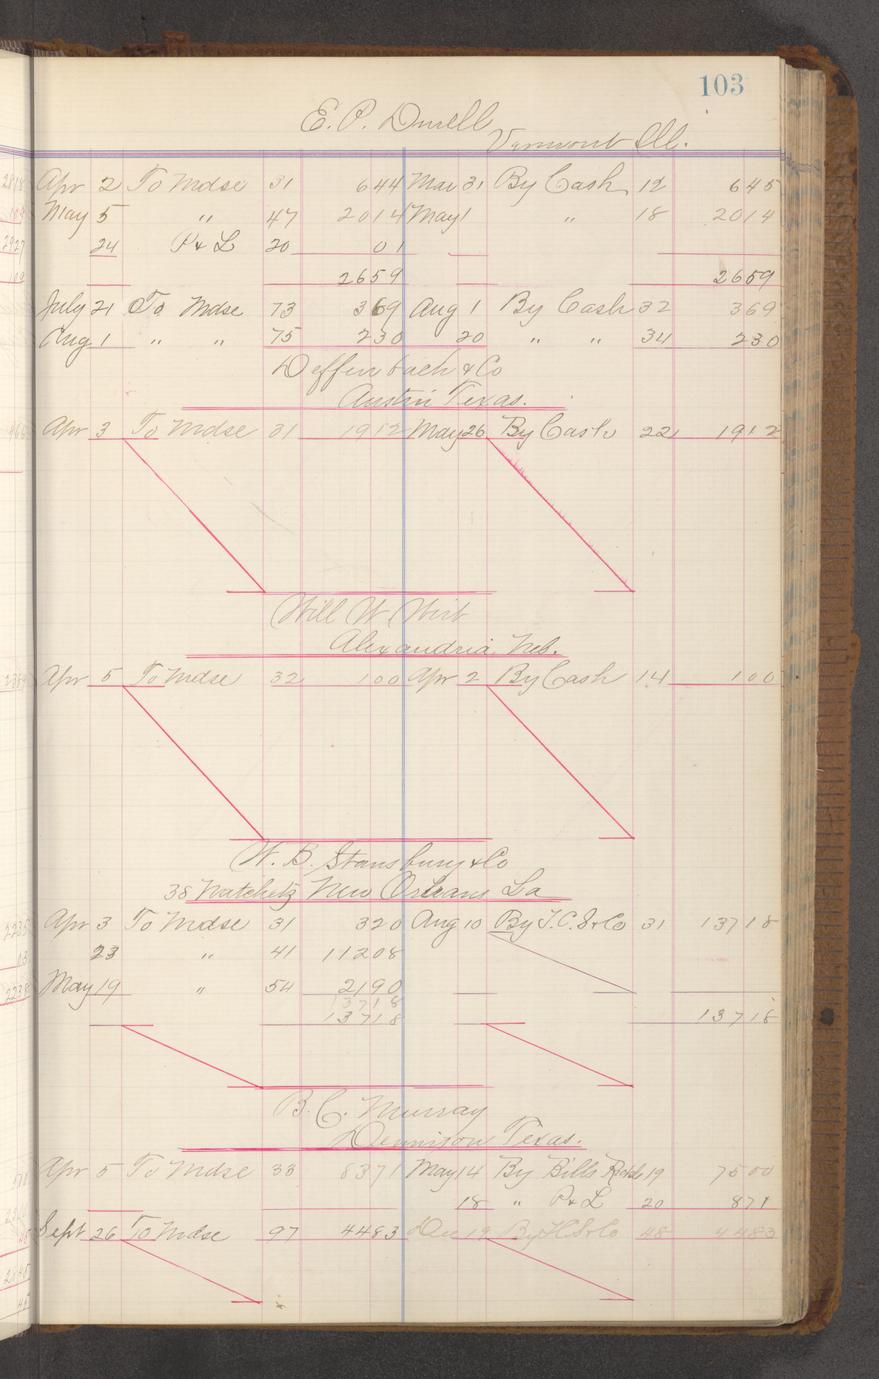 103
E. P. Durell
Vermont Ill.
Apr 2 To Mdse 31 644 Mar 31 By Cash 12 645
May 5 " 47 2014 May 1 " 18 2014
24 P & L 20 01
2659 2659
July 21 To Mdse 73 369 Aug 1 By Cash 32 369
Aug 1 " " 75 230 20 " " 34 230
Deffenbach & Co
Austin Texas.
Apr 3 To Mdse 31 1912 May 26 By Cash 22 1912
Will W. Wirt
Alexandria, Neb.
Apr 5 To Mdse 32 100 Apr 2 By Cash 14 100
W. B. Stansbury & Co
38 Natchetz New Orleans La
Apr 3 To Mdse 31 320 Aug 10 By T. C. S. & Co 31 13718
23 " 41 11208
May 19 " 54 2190
13718
13718 13718
B. C. Murray
Dennison Texas.
Apr 5 To Mdse 33 8371 May 14 By Bills 19 7500
18 " P & L 20 871
Sept 26 To Mdse 97 4483 Dec 19 By 48 4483